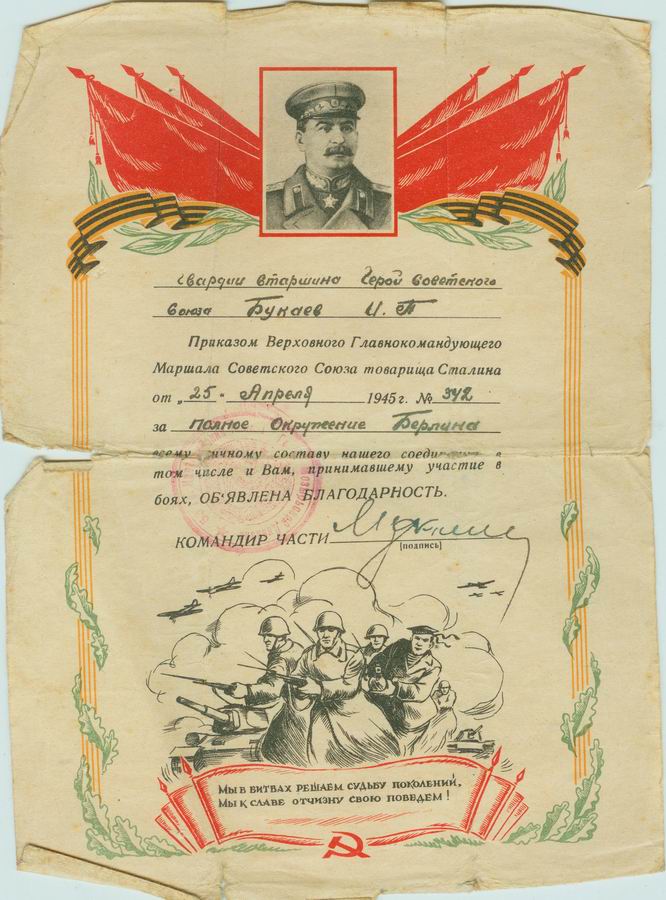 Гвардии Старшина Герой Советского
Союза Букаев И. П
Приказом Верховного Главнокомандующего
Маршала Советского Союза товарища Сталина
от „25" Апреля 1945 г. № 342
за полное Окружение Берлина
всему личному составу нашего соединения в
том числе и Вам, принимавшему участие в
боях, ОБ'ЯВЛЕНА БЛАГОДАРНОСТЬ.
КОМАНДИР ЧАСТИ
[подпись]
МЫ В БИТВАХ РЕШАЕМ СУДЬБУ ПОКОЛЕНИЙ,
МЫ К СЛАВЕ ОТЧИЗНУ СВОЮ ПОВЕДЕМ!